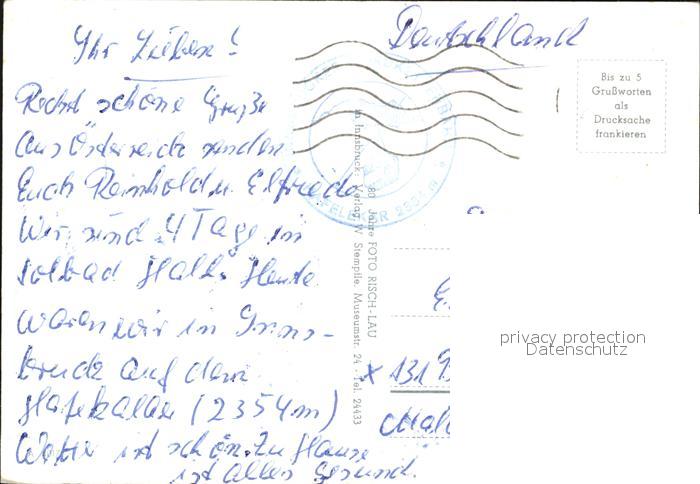 Deutschland
Ihr Lieben!
Recht schöne Grüße
aus Österreich senden
Euch Reinhold u. Elfriede
Wir sind 4 Tage in
Solbad Hall. Heute
waren wir in Inns-
bruck auf dem
Hafelekar (2354m)
Wetter ist schön. Zu Hause
ist alles gesund.
Bis zu 5
Grußworten
als
Drucksache
frankieren
80 Jahre FOTO RISCH-LAU
in Innsbruck: Verlag W. Stempfle, Museumstr. 24 - Tel. 24433
privacy protection
Datenschutz
x 131